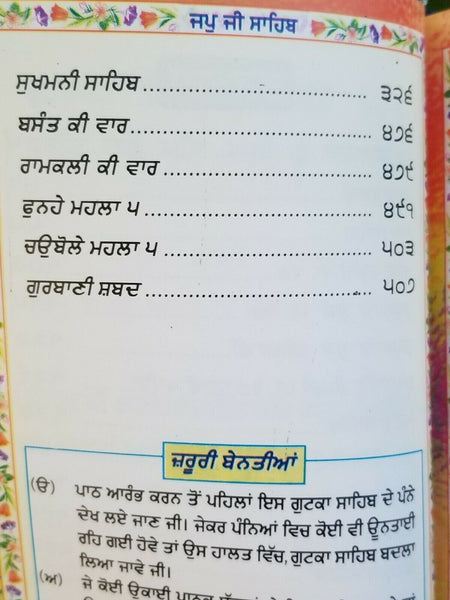 ਜਪੁ ਜੀ ਸਾਹਿਬ
ਸੁਖਮਨੀ ਸਾਹਿਬ.......................................... ੩੨੬
ਬਸੰਤ ਕੀ ਵਾਰ.......................................... ੪੭੬
ਰਾਮਕਲੀ ਕੀ ਵਾਰ..................................... ੪੭੯
ਫੁਨਹੇ ਮਹਲਾ ੫ ....................................... ੪੯੧
ਚਉਬੋਲੇ ਮਹਲਾ ੫ .................................... ੫੦੩
ਗੁਰਬਾਣੀ ਸ਼ਬਦ ........................................ ੫੦੭
ਜ਼ਰੂਰੀ ਬੇਨਤੀਆਂ
(ੳ) ਪਾਠ ਆਰੰਭ ਕਰਨ ਤੋਂ ਪਹਿਲਾਂ ਇਸ ਗੁਟਕਾ ਸਾਹਿਬ ਦੇ ਪੰਨੇ
ਦੇਖ ਲਏ ਜਾਣ ਜੀ। ਜੇਕਰ ਪੰਨਿਆਂ ਵਿਚ ਕੋਈ ਵੀ ਊਨਤਾਈ
ਰਹਿ ਗਈ ਹੋਵੇ ਤਾਂ ਉਸ ਹਾਲਤ ਵਿੱਚ, ਗੁਟਕਾ ਸਾਹਿਬ ਬਦਲਾ
ਲਿਆ ਜਾਵੇ ਜੀ।
(ਅ) ਜੇ ਕੋਈ ਉਕਾਈ